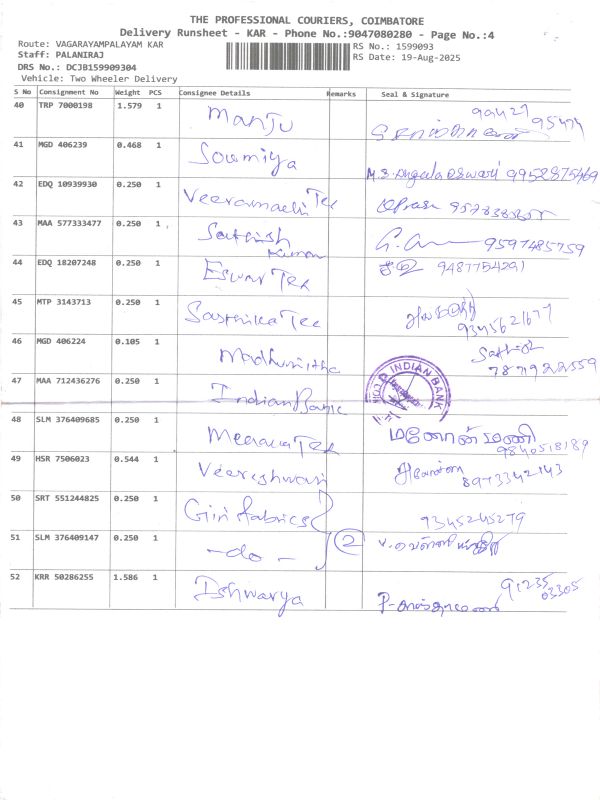 THE PROFESSIONAL COURIERS, COIMBATORE
Delivery Runsheet - KAR - Phone No.:9047080280 - Page No.:4
Route: VAGARAYAMPALAYAM KAR
RS No.: 1599093
Staff: PALANIRAJ
RS Date: 19-Aug-2025
DRS No.: DCJB159909304
Vehicle: Two Wheeler Delivery
S No Consignment No Weight PCS Consignee Details Remarks Seal & Signature
40 TRP 7000198 1.579 1 Manju
41 MGD 406239 0.468 1 Soumiya M.S. 9952875469
42 EDQ 10939930 0.250 1 Veeramachi Tex
43 MAA 577333477 0.250 1 Sathish Kumar 9597485759
44 EDQ 18207248 0.250 1 Eswar Tex 9487754291
45 MTP 3143713 0.250 1 Sasthika Tex 9345621677
46 MGD 406224 0.105 1 Madhumitha 7871922559
47 MAA 712436276 0.250 1 Indian Bank INDIAN BANK
48 SLM 376409685 0.250 1 மனோன்மணி 9840518189
49 HSR 7506023 0.544 1 Veereshwari 8973342143
50 SRT 551244825 0.250 1 Giri fabrics 9345245279
51 SLM 376409147 0.250 1 -do- 2
52 KRR 50286255 1.586 1 Ishwarya 91235 03305